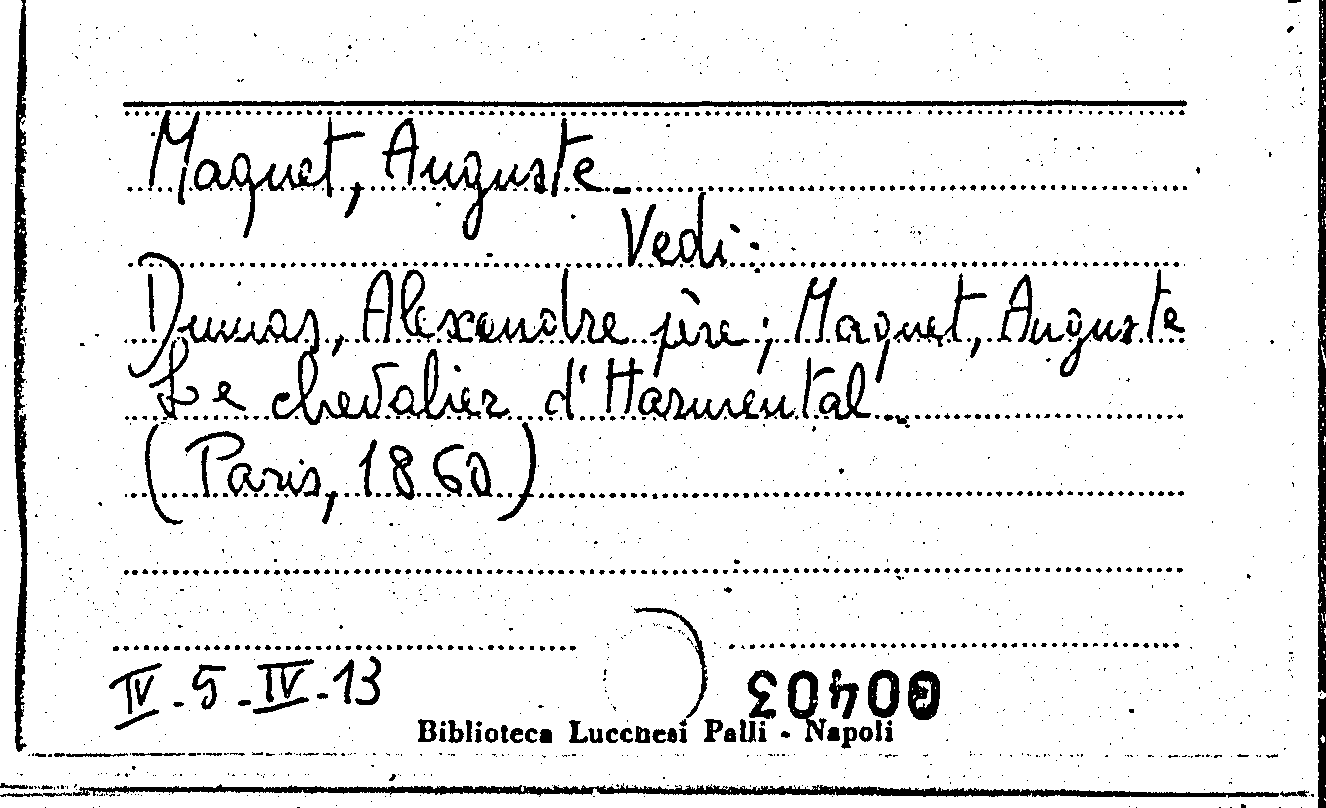 Maquet, Auguste_
Vedi:
Dumas, Alexandre père; Maquet, Auguste
Le chevalier d'Harmental_
(Paris, 1860)
IV-5-IV-13
00403
Biblioteca Lucchesi Palli - Napoli